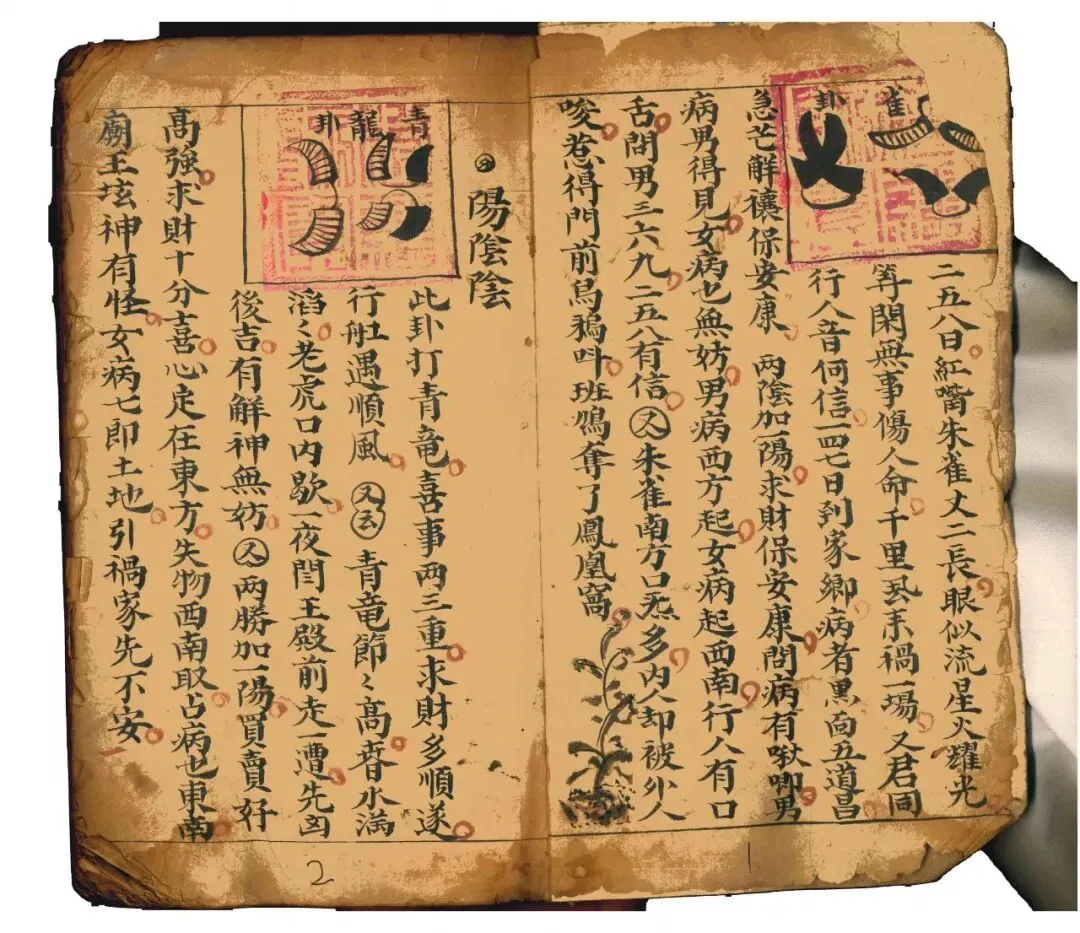 雀卦
二五八日紅嘴朱雀丈二長眼似流星火耀光
等閑無事傷人命千里禍一場又君同
行人音何信一四七日到家鄉病者黑面五道昌
急芒解禳保安康 两陰加一陽求財保安康問病有啾唧男
病男得見女病也無妨男病西方起女病起西南行人有口
舌問男三六九二五八有信又朱雀南方口炁多内人却被外人
唆惹得門前烏鴉呌班鳩奪了鳳凰窩
1
陽陰陰
青龍卦
此卦打青竜喜事两三重求財多順遂
行舡遇順風 又云 青竜節々髙水满
滔々老虎口内歇一夜閆王殿前走一遭先凶
後吉有解神無妨又两勝加一陽買賣好
髙強求財十分喜心定在東方失物西南取占病也東南
廟王坛神有怪女病七即土地引禍家先不安
2